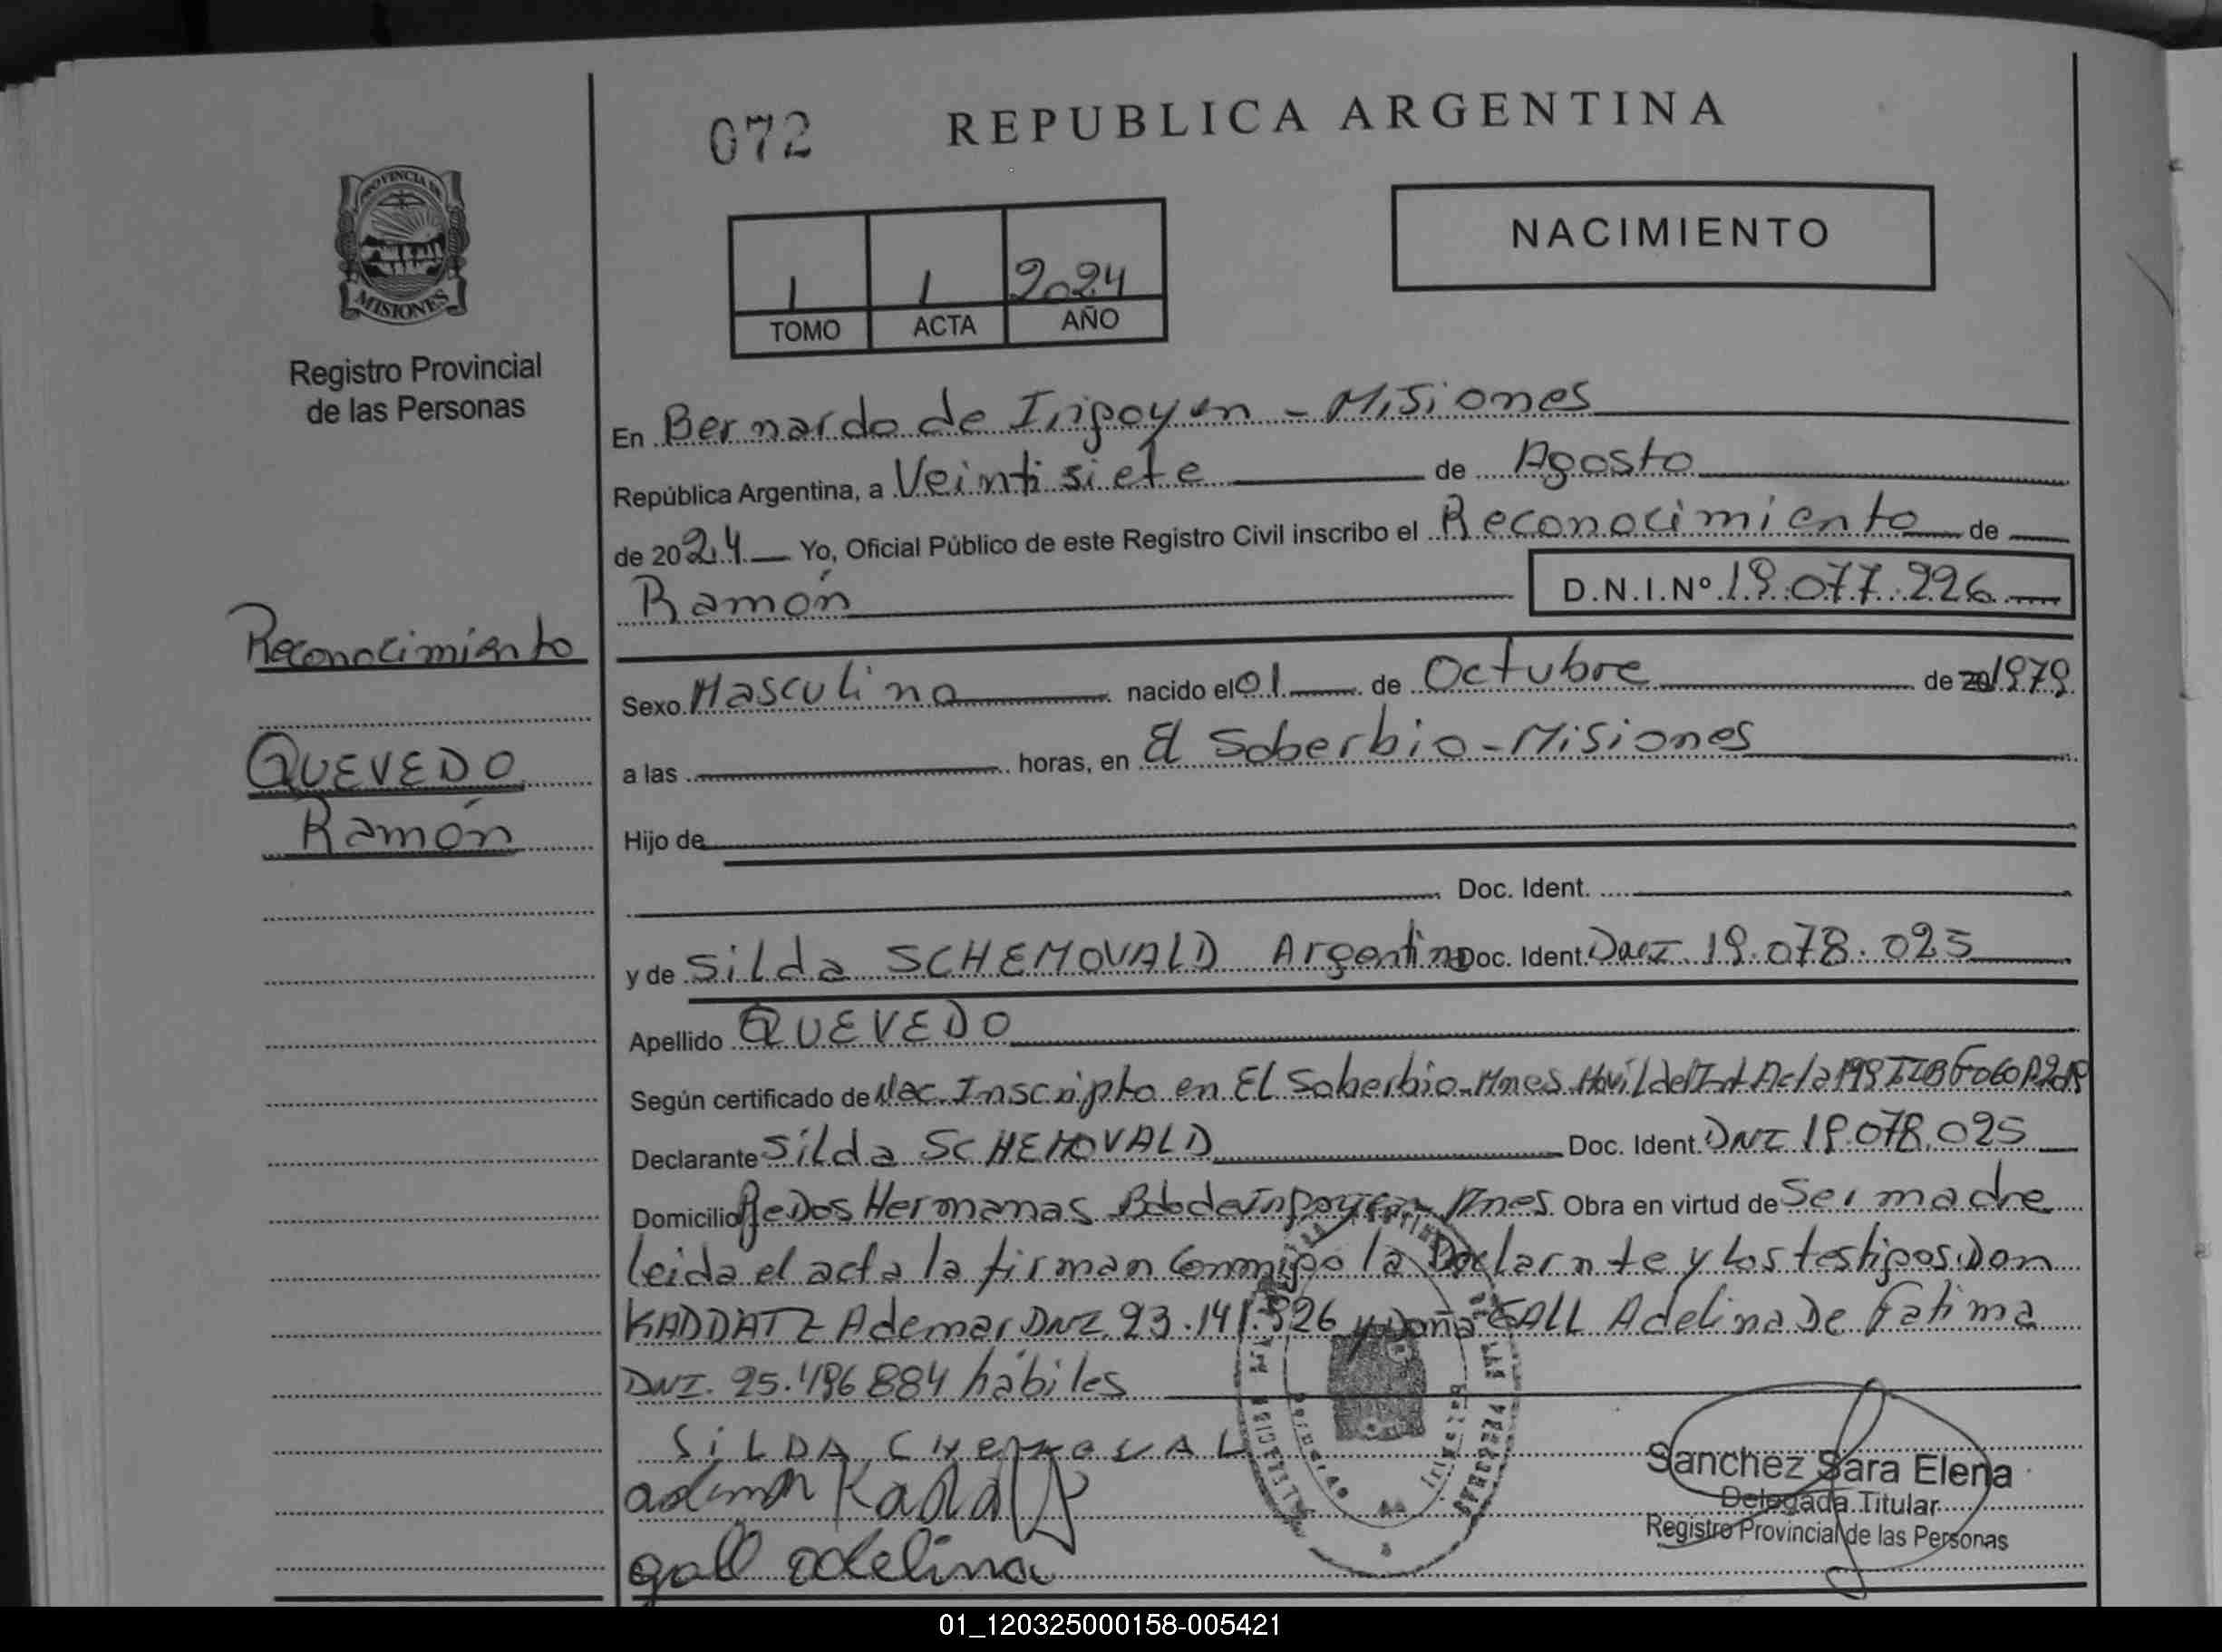 072 REPUBLICA ARGENTINA
PROVINCIA DE
MISIONES
Registro Provincial
de las Personas
NACIMIENTO
1 1 2024
TOMO ACTA AÑO
En Bernardo de Irigoyen - Misiones
República Argentina, a Veintisiete de Agosto
de 2024 Yo, Oficial Público de este Registro Civil inscribo el Reconocimiento de
Ramón D.N.I.Nº 19.077.226
Reconocimiento
QUEVEDO
Ramón
Sexo Masculino nacido el 01 de Octubre de 1979
a las horas, en El Soberbio - Misiones
Hijo de
Doc. Ident.
y de Silda SCHEMOVALD Argentina Doc. Ident. DNI 19.078.025
Apellido QUEVEDO
Según certificado de Nac. Inscripto en El Soberbio - Mnes
Declarante Silda SCHEMOVALD Doc. Ident. DNI 19.078.025
Domicilio Dos Hermanas Bdo de Irigoyen - Mnes Obra en virtud de Ser madre
leida el acta la firman Conmigo la Declarnte y los testigos Don
KADDATZ Ademar DNI 93.141.326 y Doña GALL Adelina De Fatima
DNI. 95.486884 hábiles
SiLDA CHEMOVAL
gall adelina
Sanchez Sara Elena
Delegada Titular
Registro Provincial de las Personas
01_120325000158-005421